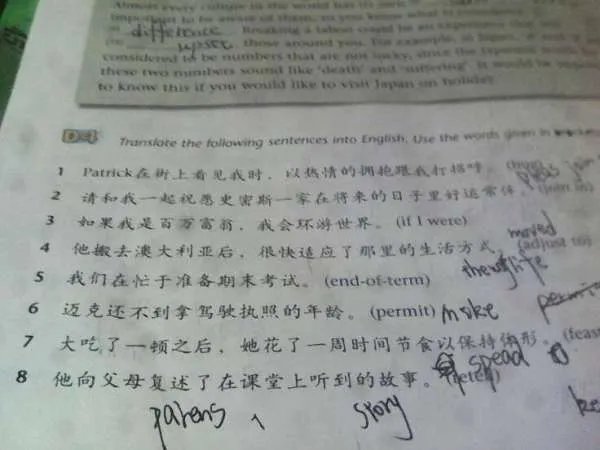 Almost every culture in the world has its own
important to be aware of them, so you know what
difference Breaking a taboo could be an
upset those around you. For example, in Japan,
considered to be numbers that are not lucky, since the Japanese
these two numbers sound like 'death' and 'suffering'. It would be
to know this if you would like to visit Japan on holiday.
D4 Translate the following sentences into English. Use the words given in
1 Patrick在街上看见我时，以热情的拥抱跟我打招呼。(hug)
2 请和我一起祝愿史密斯一家在将来的日子里好运常伴。(join in)
3 如果我是百万富翁，我会环游世界。(if I were)
moved
4 他搬去澳大利亚后，很快适应了那里的生活方式。(adjust to)
life
5 我们在忙于准备期末考试。(end-of-term)
6 迈克还不到拿驾驶执照的年龄。(permit) mske permit
7 大吃了一顿之后，她花了一周时间节食以保持体形。(feast
spead
8 他向父母复述了在课堂上听到的故事。(retell)
parens story
ke